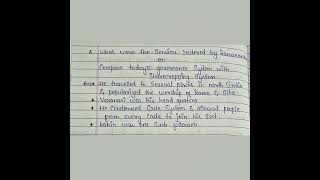 what were the Services rendered by Ramananda
or
Compare today's governance System with
Sharecropping System
Ans→ He travelled to Several places in north India
& popularized the worship of Rama & Sita.
* Varanasi was his head quaters
* He condemned Caste System & allowed people
from every caste to join his Sect.
* Kabir was one Such follower.